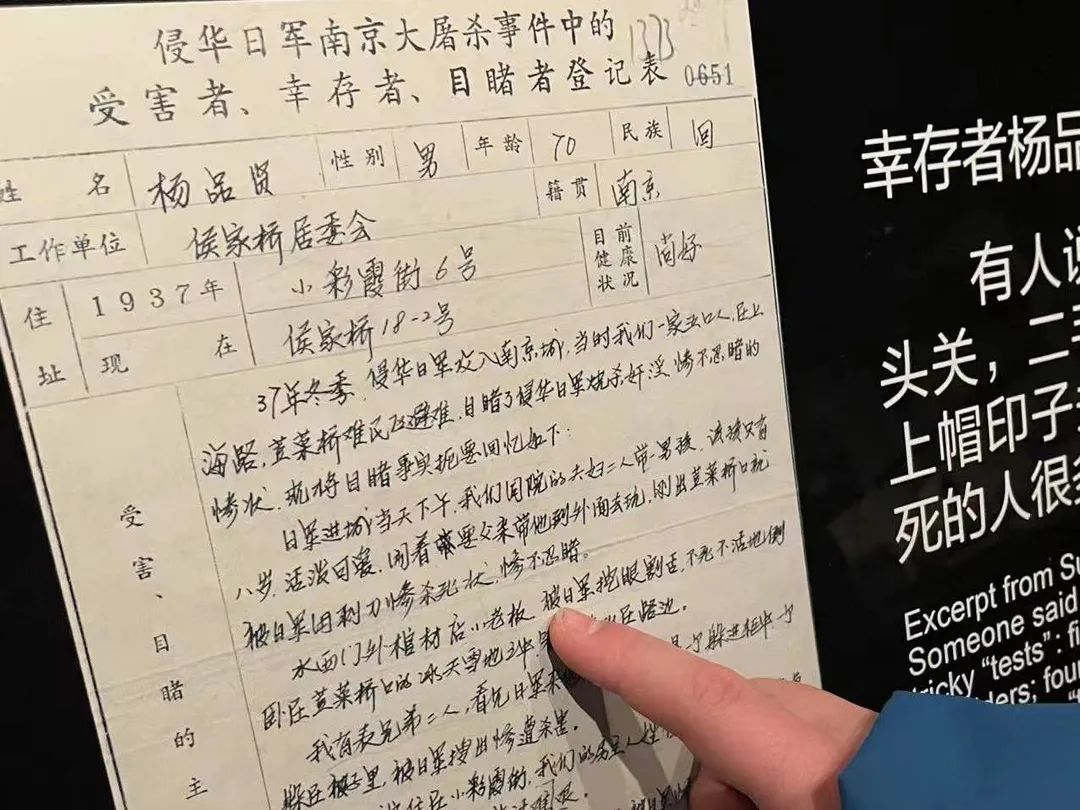 侵华日军南京大屠杀事件中的
受害者、幸存者、目睹者登记表
1373
0651
姓 名 杨品贤 性别 男 年龄 70 民族 回
工作单位 侯家桥居委会 籍贯 南京
住址 1937年 小彩霞街6号 目前健康状况 尚好
现在 侯家桥18-2号
受害、目睹的主
37年冬季，侵华日军攻入南京城，当时我们一家五口人，在上
海路，荳菜桥难民区避难，目睹了侵华日军烧杀奸淫，惨不忍睹的
惨状，现将目睹事实扼要回忆如下：
日军进城当天下午，我们同院的夫妇二人带一男孩，该孩只有
八岁，活泼可爱，闹着要父亲带他到外面去玩，刚出荳菜桥口就
被日军用刺刀惨杀死状，惨不忍睹。
水西门外棺材店小老板，被日军挖眼割舌，不死不活地倒
卧在荳菜桥口的冰天雪地之中，在路边。
我有表兄弟二人，看见日军来 躲进柜中，一个
躲在被子里，被日军搜出惨遭杀害。
住在小彩霞街，我们的房主人姓
幸存者杨品
有人说
头关，二
上帽印子
死的人很多
Excerpt from Su
Someone said
tricky “tests”: fi
ders; four